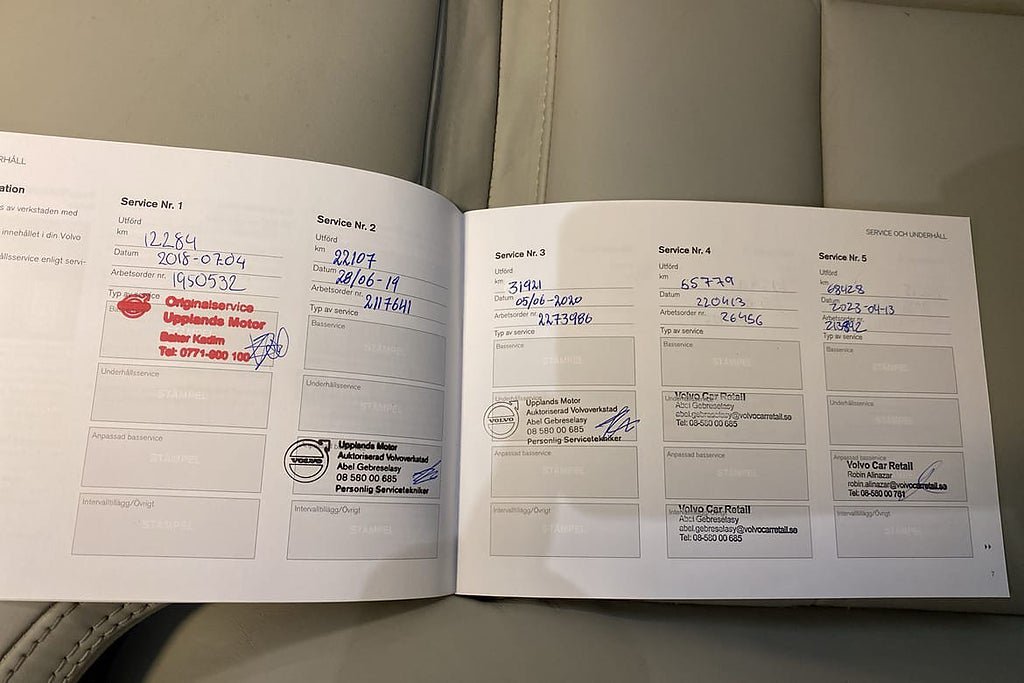 RHÅLL
ation
s av verkstaden med
innehållet i din Volvo
hållsservice enligt servi-
Service Nr. 1
Utförd
km 12284
Datum 2018-07-04
Arbetsorder nr. 1950532
Typ av service
Originalservice
Upplands Motor
Baker Kadim
Tel: 0771-800 100
Underhållsservice
STÄMPEL
Anpassad basservice
STÄMPEL
Intervalltillägg/Övrigt
STÄMPEL
Service Nr. 2
Utförd
km 22107
Datum 28/06-19
Arbetsorder nr. 2117641
Typ av service
Basservice
STÄMPEL
Underhållsservice
STÄMPEL
VOLVO
Upplands Motor
Auktoriserad Volvoverkstad
Abel Gebreselasy
08 580 00 685
Personlig Servicetekniker
Intervalltillägg/Övrigt
STÄMPEL
SERVICE OCH UNDERHÅLL
Service Nr. 3
Utförd
km 31921
Datum 05/06-2020
Arbetsorder nr. 2273986
Typ av service
Basservice
STÄMPEL
Underhållsservice
VOLVO
Upplands Motor
Auktoriserad Volvoverkstad
Abel Gebreselasy
08 580 00 685
Personlig Servicetekniker
Anpassad basservice
STÄMPEL
Intervalltillägg/Övrigt
STÄMPEL
Service Nr. 4
Utförd
km 65779
Datum 220413
Arbetsorder nr. 26456
Typ av service
Basservice
STÄMPEL
Underhållsservice
Volvo Car Retail
Abel Gebreselasy
abel.gebreselasy@volvocarretail.se
Tel: 08-580 00 685
Anpassad basservice
STÄMPEL
Intervalltillägg/Övrigt
Volvo Car Retail
Abel Gebreselasy
abel.gebreselasy@volvocarretail.se
Tel: 08-580 00 685
Service Nr. 5
Utförd
km 68428
Datum 2023-04-13
Arbetsorder nr.
Typ av service
Basservice
STÄMPEL
Underhållsservice
STÄMPEL
Anpassad basservice
Volvo Car Retail
Robin Alinazar
robin.alinazar@volvocarretail.se
Tel: 08-580 00 761
Intervalltillägg/Övrigt
STÄMPEL
7